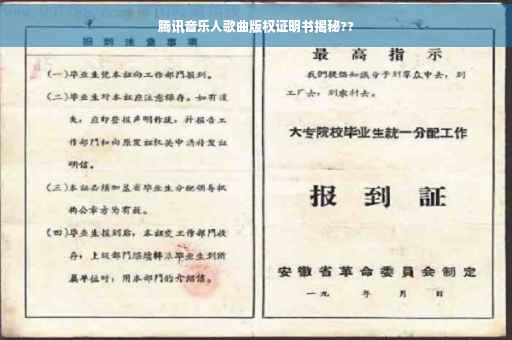 腾讯音乐人歌曲版权证明书揭秘??
报到注意事项
(一)毕业生凭本证向工作部门报到。
(二)毕业生对本证应注意保存。如有遗
失,应即登报声明作废,并报告工
作部门和向原发证机关申请补发证
明信。
(三)本证必须加盖省毕业生分配领导机
构公章方为有效。
(四)毕业生报到后,本证交工作部门收
存;上级部门
毕业生到所
属单位时,用本部门的介绍信。
最高指示
我们提倡知识分子到群众中去,到
工厂去,到农村去。
大专院校毕业生统一分配工作
报到証
安徽省革命委员会制定
一九 年 月 日